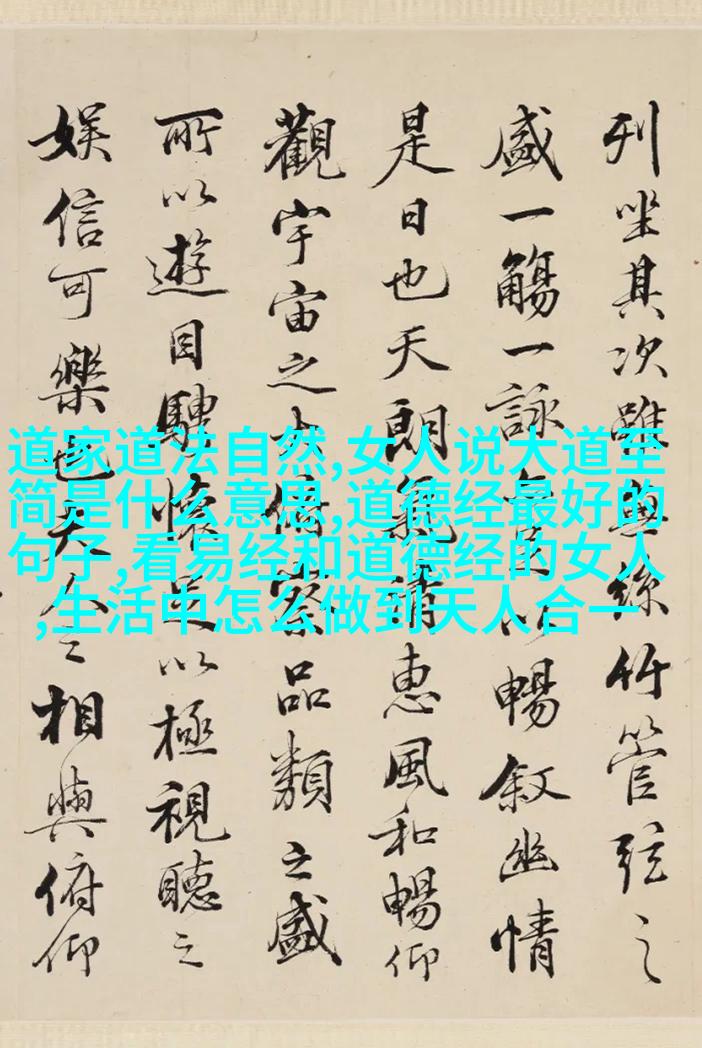 列坐其次雖無絲竹管弦之
盛一觴一詠亦足以暢叙幽情
是日也天朗氣清惠風和暢仰
觀宇宙之大俯察品類之盛
所以遊目騁懷足以極視聽之
娱信可樂也夫人之相與俯仰
道家道法自然,女人说大道至
简是什么意思,道德经最好的
句子,看易经和道德经的女人
,生活中怎么做到天人合一